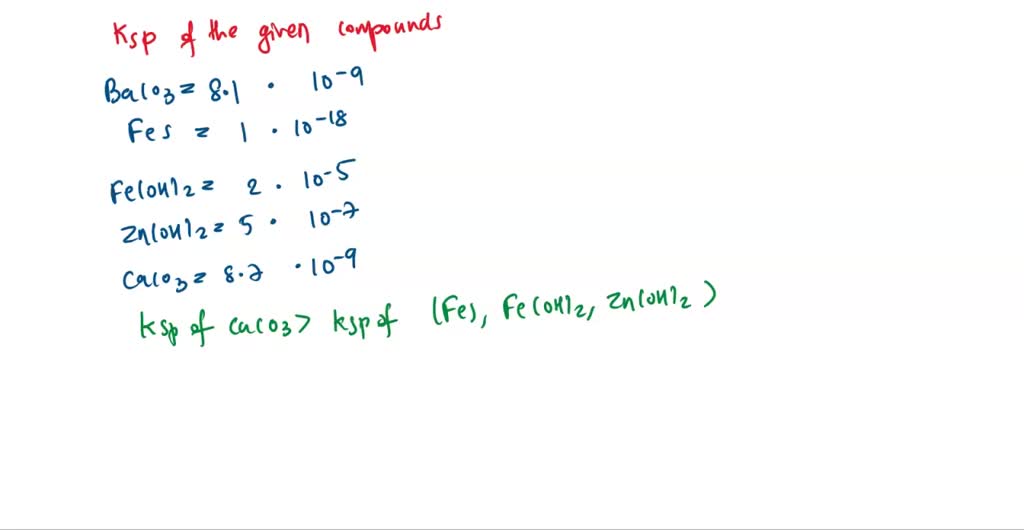 Ksp of the given compounds
BaCO3 = 8.1 · 10-9
Fes = 1 · 10-18
Fe(OH)2 = 2 · 10-5
Zn(OH)2 = 5 · 10-7
CaCO3 = 8.7 · 10-9
Ksp of CaCO3 > Ksp of (Fes, Fe(OH)2, Zn(OH)2)